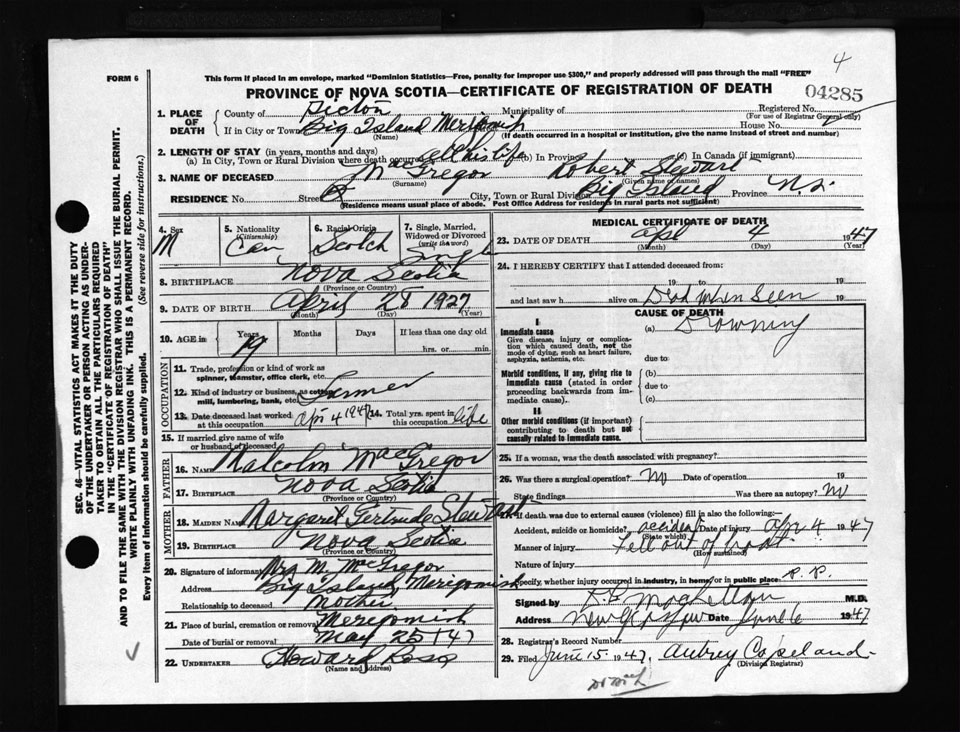 4
This form if placed in an envelope, marked "Dominion Statistics—Free, penalty for improper use $300," and properly addressed will pass through the mail "FREE"
FORM 6
PROVINCE OF NOVA SCOTIA—CERTIFICATE OF REGISTRATION OF DEATH
04285
1. PLACE OF DEATH
County of Pictou Municipality of Registered No.
(For use of Registrar General only)
If in City or Town Big Island Merigomish House No.
(Name) (If death occurred in a hospital or institution, give the name instead of street and number)
2. LENGTH OF STAY (in years, months and days)
(a) In City, Town or Rural Division where death occurred All his life (b) In Province (c) In Canada (if immigrant)
3. NAME OF DECEASED MacGregor Robert Stewart
(Surname) (Given name or names)
RESIDENCE No. Street City, Town or Rural Division Big Island Province N.S.
(Residence means usual place of abode. Post Office Address for residents in rural parts not sufficient)
4. Sex M
5. Nationality (Citizenship) Can
6. Racial Origin Scotch
7. Single, Married, Widowed or Divorced (write the word) Single
8. BIRTHPLACE Nova Scotia
(Province or Country)
9. DATE OF BIRTH April 28 1927
(Month) (Day) (Year)
10. AGE in Years 19 Months Days If less than one day old
hrs. or min.
OCCUPATION
11. Trade, profession or kind of work as spinner, teamster, office clerk, etc.
12. Kind of industry or business, as cotton mill, lumbering, bank, etc. Farmer
13. Date deceased last worked at this occupation Apr 4 1947
14. Total yrs. spent in this occupation life
15. If married give name of wife or husband of deceased
FATHER
16. NAME Malcolm MacGregor
17. BIRTHPLACE Nova Scotia
(Province or Country)
MOTHER
18. MAIDEN NAME Margaret Gertrude Stewart
19. BIRTHPLACE Nova Scotia
(Province or Country)
20. Signature of informant Mrs M. McGregor
Address Big Island, Merigomish
Relationship to deceased Mother
21. Place of burial, cremation or removal Merigomish
Date of burial or removal May 25 1947
22. UNDERTAKER Howard Ross
(Name and address)
MEDICAL CERTIFICATE OF DEATH
23. DATE OF DEATH Apr 4 1947
(Month) (Day) (Year)
24. I HEREBY CERTIFY that I attended deceased from:
19 to 19
and last saw h alive on Dead when seen 19
CAUSE OF DEATH
I
Immediate cause (a) Drowning
Give disease, injury or complication which caused death, not the mode of dying, such as heart failure, asphyxia, asthenia, etc.
due to
Morbid conditions, if any, giving rise to immediate cause (stated in order proceeding backwards from immediate cause).
(b)
due to
(c)
II
Other morbid conditions (if important) contributing to death but not causally related to immediate cause.
25. If a woman, was the death associated with pregnancy?
26. Was there a surgical operation? No Date of operation 19
State findings Was there an autopsy? No
27. If death was due to external causes (violence) fill in also the following:
Accident, suicide or homicide? accident Date of injury Apr 4 1947
(State which)
Manner of injury Fell out of boat
(How sustained)
Nature of injury
Specify, whether injury occurred in industry, in home, or in public place P.P.
Signed by M.D.
Address New Glasgow Date June 6 1947
28. Registrar's Record Number
29. Filed June 15 1947. Aubrey Copeland
(Division Registrar)
SEC. 46—VITAL STATISTICS ACT MAKES IT THE DUTY
OF THE UNDERTAKER OR PERSON ACTING AS UNDERTAKER TO OBTAIN ALL THE PARTICULARS REQUIRED
IN THE "CERTIFICATE OF REGISTRATION OF DEATH"
AND TO FILE THE SAME WITH THE DIVISION REGISTRAR WHO SHALL ISSUE THE BURIAL PERMIT.
WRITE PLAINLY WITH UNFADING INK. THIS IS A PERMANENT RECORD.
Every item of information should be carefully supplied. (See reverse side for instructions.)